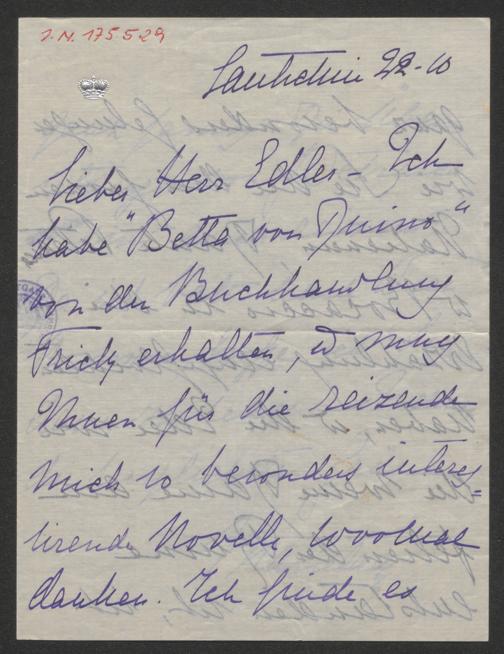 J.N. 175529
Lautschin 22-10
Lieber Herr Edler - Ich
habe "Betta von Duino"
von der Buchhandlung
Frick erhalten, u mag
Ihnen für die reizende
mich so besonders interes-
sirende Novelle, 1000mal
danken. Ich finde es